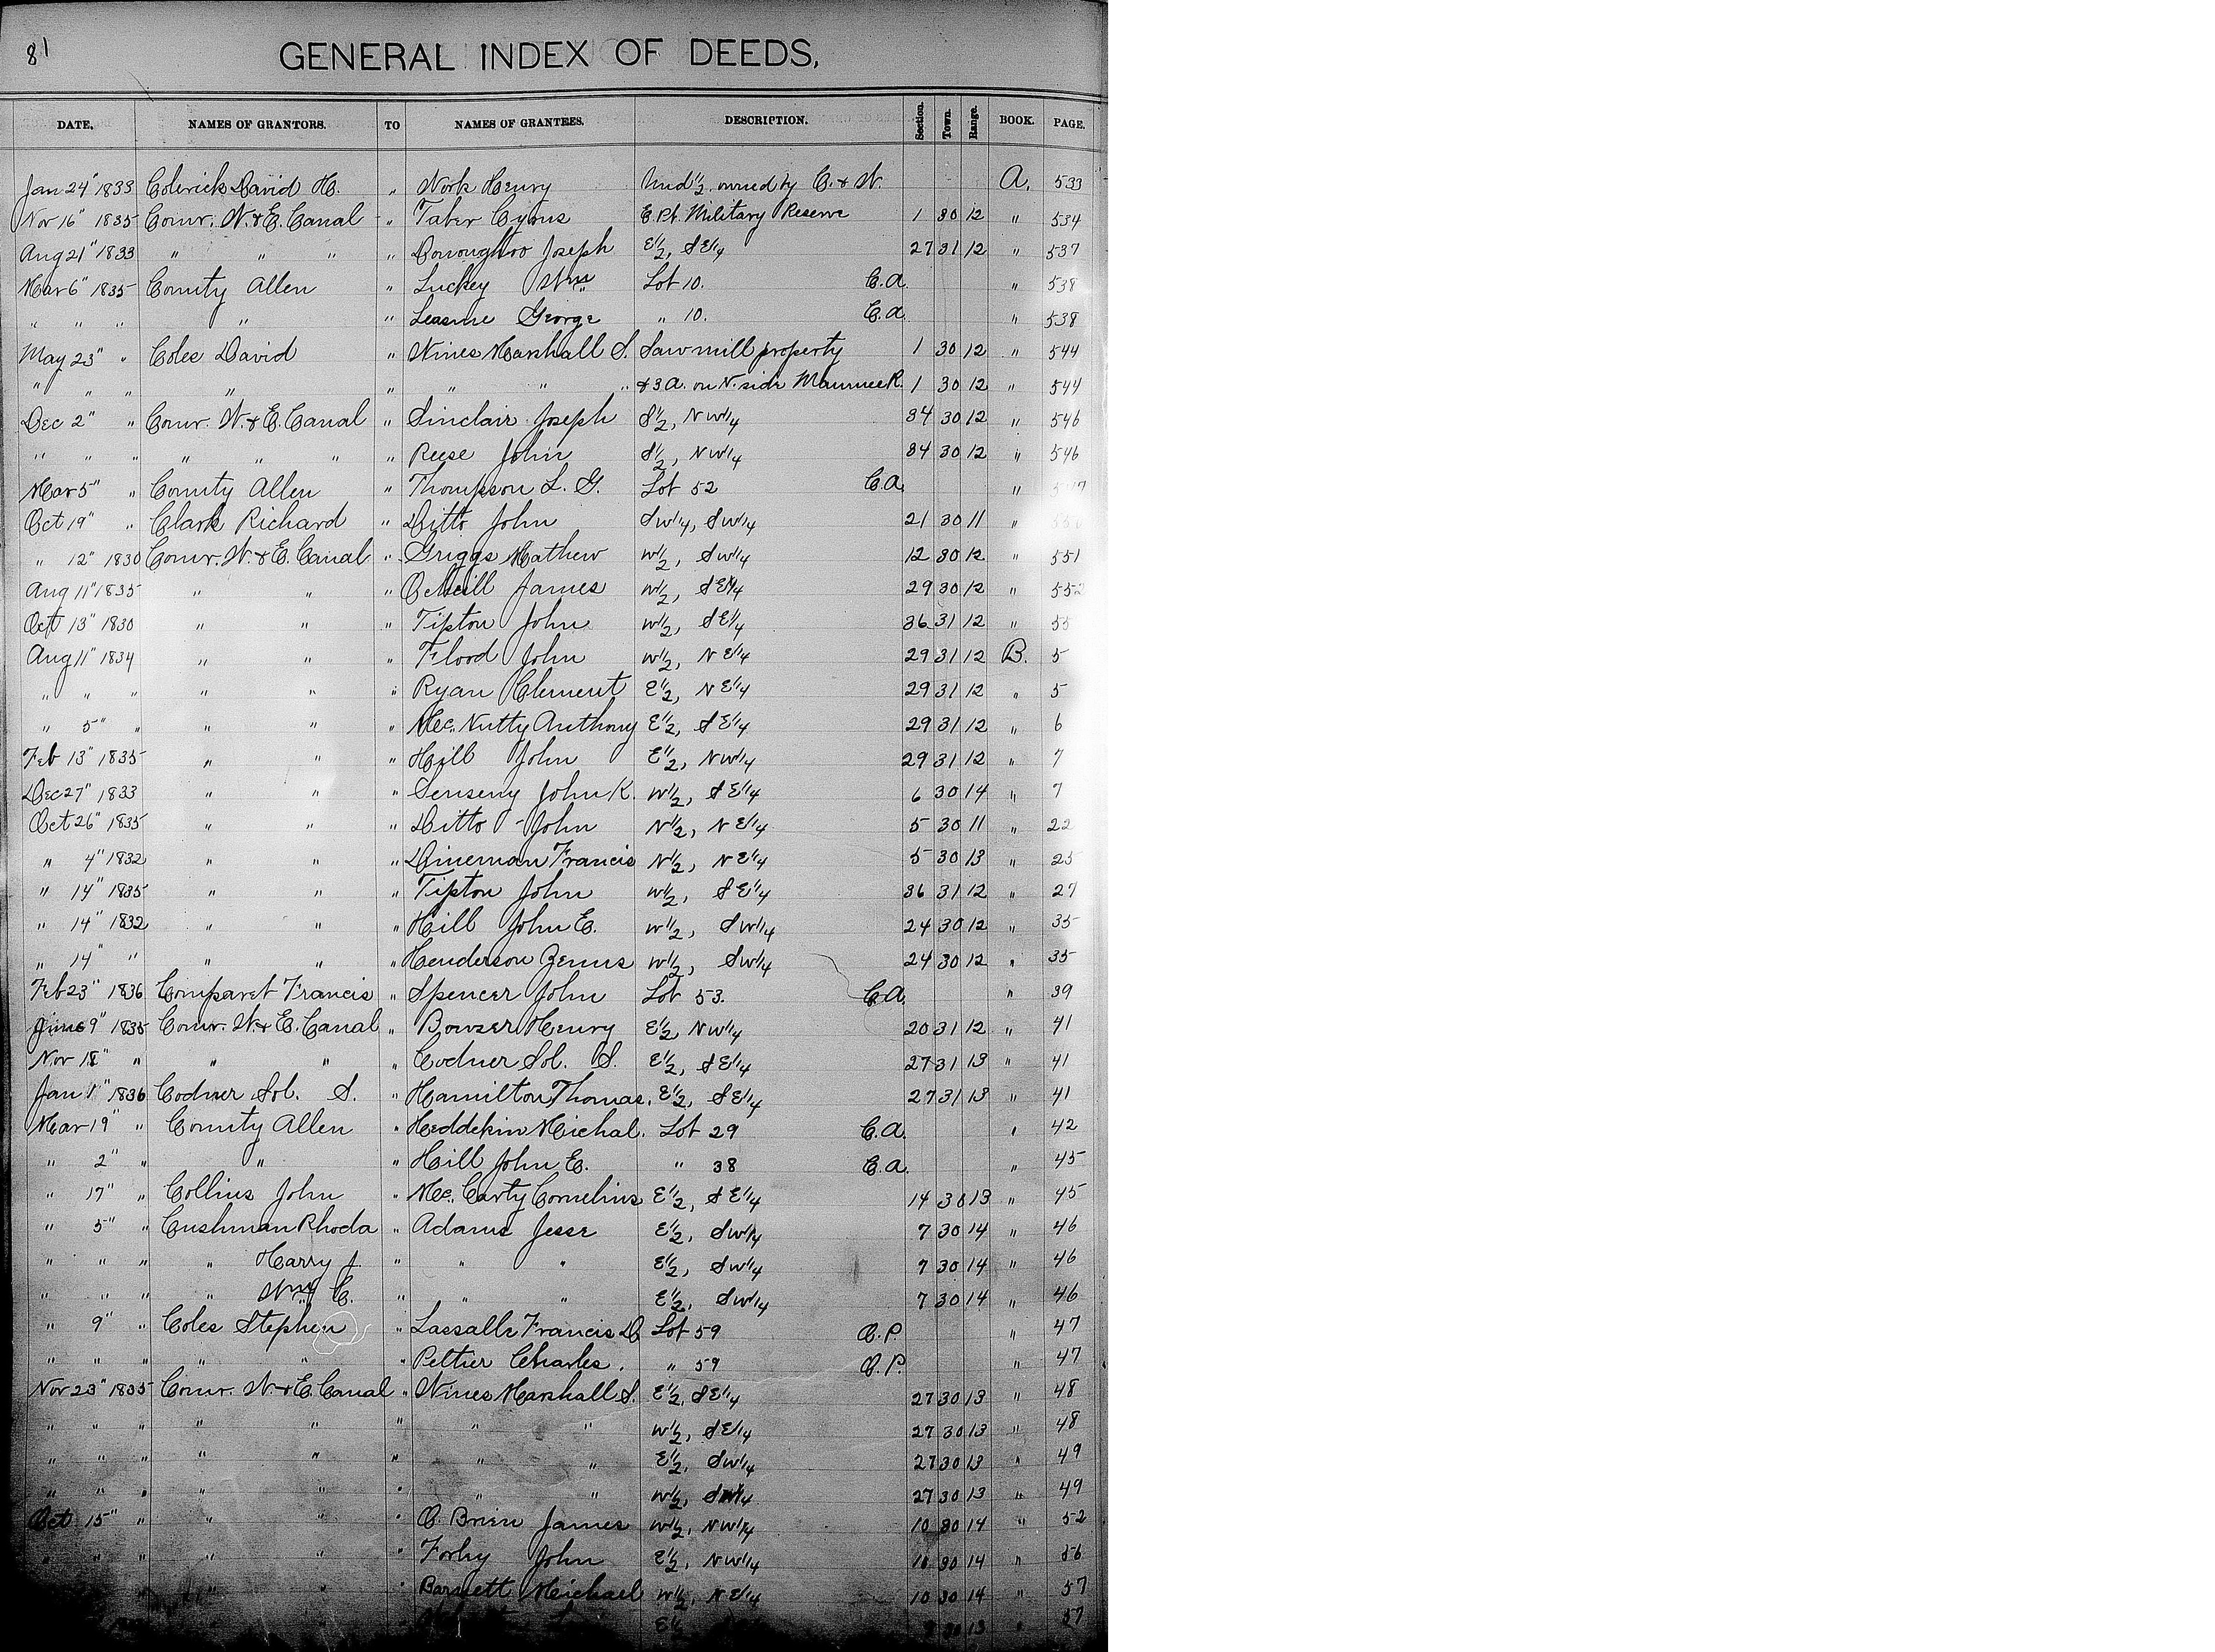 81
GENERAL INDEX OF DEEDS.
DATE. NAMES OF GRANTORS. TO NAMES OF GRANTEES. DESCRIPTION. Section. Town. Range. BOOK. PAGE.
Jan 24" 1833 Colerick David H. " Work Henry Und 1/2 owned by C. & W. A. 533
Nov 16" 1835 Comr. W. & E. Canal " Taber Cyrus E. Pt. Military Reserve 1 30 12 " 534
Aug 21" 1833 " " " " Donoughoo Joseph E 1/2, S E 1/4 27 31 12 " 537
Mar 6" 1835 County Allen " Luckey Wm Lot 10. C.A. " 538
" " " " " Leasure George " 10. C.A. " 538
May 23" " Coles David " Wines Marshall S. Saw mill property 1 30 12 " 544
" " " " " " " " & 3 A. on N. side Maumee R. 1 30 12 " 544
Dec 2" " Comr. W. & E. Canal " Sinclair Joseph S 1/2, N W 1/4 34 30 12 " 546
" " " " " " " Reese John S 1/2, N W 1/4 34 30 12 " 546
Mar 5" " County Allen " Thompson L. G. Lot 52 C.A. "
Oct 19" " Clark Richard " Ditto John S W 1/4, S W 1/4 21 30 11 "
" 12" 1830 Comr. W. & E. Canal " Griggs Mathew W 1/2, S W 1/4 12 30 12 " 551
Aug 11" 1835 " " " O'Neill James W 1/2, S E 1/4 29 30 12 " 552
Oct 13" 1830 " " " Tipton John W 1/2, S E 1/4 36 31 12 " 55
Aug 11" 1834 " " " Flood John W 1/2, N E 1/4 29 31 12 B. 5
" " " " " " Ryan Clement E 1/2, N E 1/4 29 31 12 " 5
" 5" " " " " Mc. Nutty Anthony E 1/2, S E 1/4 29 31 12 " 6
Feb 13" 1835 " " " Hill John E 1/2, N W 1/4 29 31 12 " 7
Dec 27" 1833 " " " Senseny John K. W 1/2, S E 1/4 6 30 14 " 7
Oct 26" 1835 " " " Ditto John N 1/2, N E 1/4 5 30 11 " 22
" 4" 1832 " " " Dineman Francis N 1/2, N E 1/4 5 30 13 " 25
" 14" 1835 " " " Tipton John W 1/2, S E 1/4 36 31 12 " 27
" 14" 1832 " " " Hill John E. W 1/2, S W 1/4 24 30 12 " 35
" 14" " " " " Henderson Zenus W 1/2, S W 1/4 24 30 12 " 35
Feb 23" 1836 Comparet Francis " Spencer John Lot 53. C.A. " 39
June 9" 1835 Comr. W. & E. Canal " Bowser Henry E 1/2, N W 1/4 20 31 12 " 41
Nov 18" " " " " Codner Sol. S. E 1/2, S E 1/4 27 31 13 " 41
Jan 1" 1836 Codner Sol. S. " Hamilton Thomas. E 1/2, S E 1/4 27 31 13 " 41
Mar 19" " County Allen " Heddekin Michal. Lot 29 C.A. " 42
" 2" " " " Hill John E. " 38 C.A. " 45
" 17" " Collins John " Mc. Carty Cornelius E 1/2, S E 1/4 14 30 13 " 45
" 5" " Cushman Rhoda " Adams Jesse E 1/2, S W 1/4 7 30 14 " 46
" " " " Harry J. " " " E 1/2, S W 1/4 7 30 14 " 46
" " " " Wm C. " " " E 1/2, S W 1/4 7 30 14 " 46
" 9" " Coles Stephen " Lassalle Francis D Lot 59 O.P. " 47
" " " " " " Peltier Charles. " 59 O.P. " 47
Nov 23" 1835 Comr. W. & E. Canal " Wines Marshall S. E 1/2, S E 1/4 27 30 13 " 48
" " " " " " " " W 1/2, S E 1/4 27 30 13 " 48
" " " " " " " " E 1/2, S W 1/4 27 30 13 " 49
" " " " " " " " W 1/2, S W 1/4 27 30 13 " 49
Oct 15" " " " " O. Brien James W 1/2, N W 1/4 10 30 14 " 52
" " " " " " Forby John E 1/2, N W 1/4 10 30 14 " 56
" " " Barnett Michael W 1/2, N E 1/4 10 30 14 " 57
E 1/2 30 13 " 57